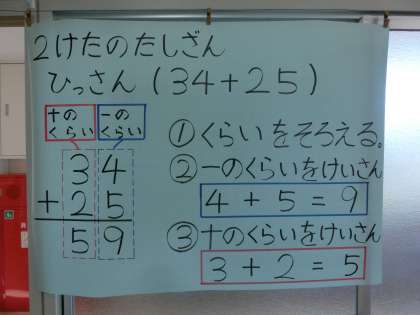 2けたのたしざん
ひっさん(34+25)
十の
くらい
一の
くらい
34
+25
59
①くらいをそろえる。
②一のくらいをけいさん
4+5=9
③十のくらいをけいさん
3+2=5